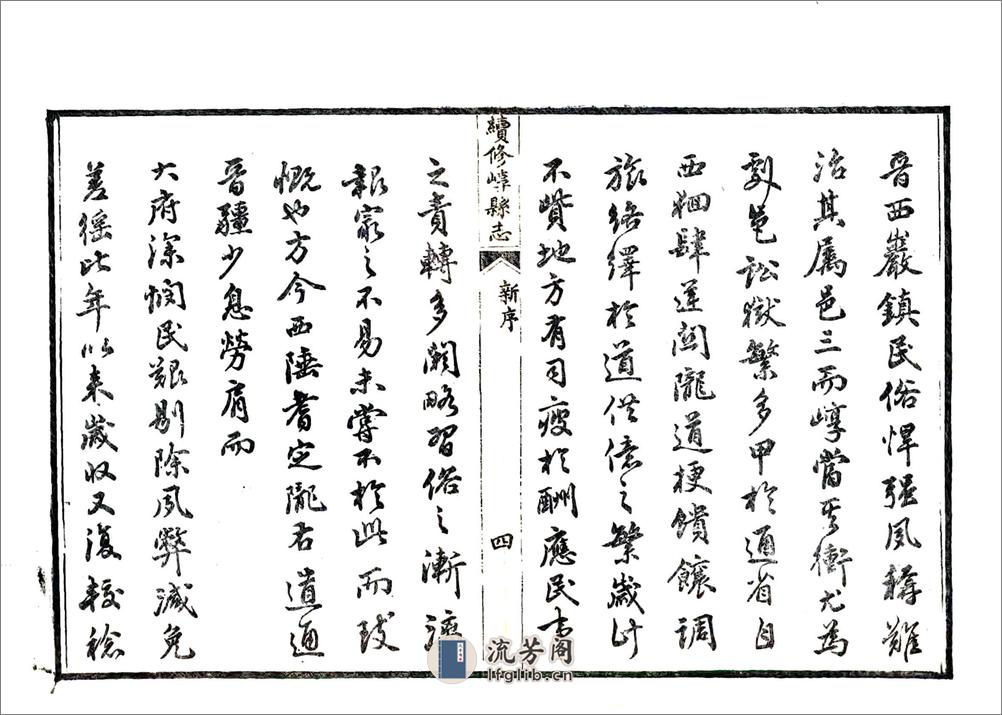 晉西巖鎮民俗悍强風稱難
治其屬邑三而崞當其衝尤為
劇邑訟獄繁多甲於通省自
西肆逆關隴道梗饋饟調
旅絡繹於道供億之繁歲計
不貲地方有司疲於酬應民事
續修崞縣志
新序
四
之責轉多闊略習俗之漸澆
之不易未嘗不於此而致
慨也方今西陲耆定隴右道通
晉疆少息勞肩而
大府深憫民艱剔除夙弊減免
差徭比年以來歲收又復較稔
流芳阁
lfglib.cn